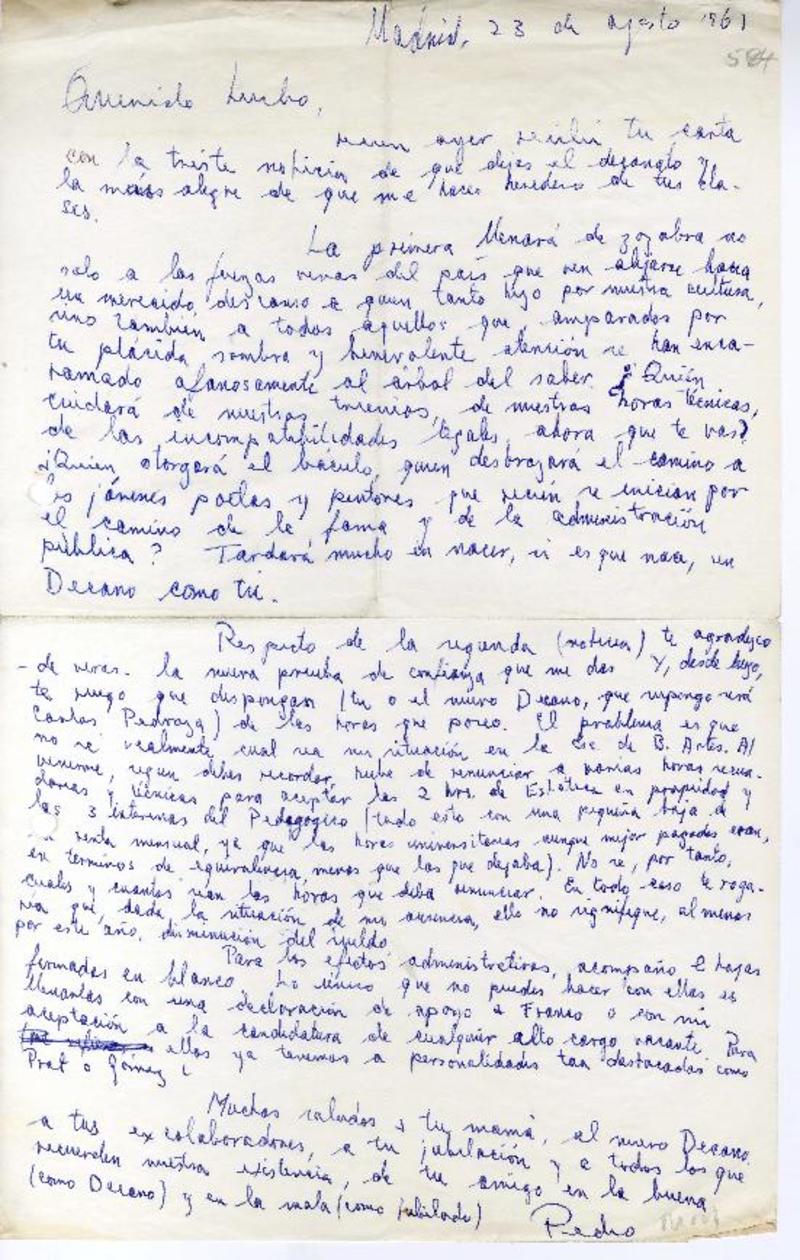 Madrid, 23 de agosto 1961
584
Querido Lucho,
recien ayer recibí tu carta
con la triste noticia de que dejas el decanato y
la más alegre de que me haces heredero de tus cla-
ses.
La primera llenará de zozobra no
solo a las fuerzas vivas del país que ven alejarse hacia
un merecido descanso a quien tanto hizo por nuestra cultura,
sino tambien a todos aquellos que, amparados por
tu plácida sombra y benevolente atención se han enca-
ramado afanosamente al árbol del saber. ¿Quién
cuidará de nuestros trienios, de nuestras horas técnicas,
de las incompatibilidades legales, ahora que te vas?
¿Quien otorgará el báculo, quien desbrozará el camino a
los jóvenes poetas y pintores que recién se inician por
el camino de la fama y de la administración
pública? Tardará mucho en nacer, si es que nace, un
Decano como tú.
Respecto de la segunda (noticia) te agradezco
- de veras - la nueva prueba de confianza que me das y, desde luego,
te ruego que dispongan (tu o el nuevo Decano, que supongo será
Carlos Pedraza) de las horas que poseo. El problema es que
no sé realmente cual sea mi situación en la Esc. de B. Artes. Al
venirme, segun debes recordar, hube de renunciar a varias horas secun-
darias y técnicas para aceptar las 2 hrs. de Estética en propiedad y
las 3 interinas del Pedagógico (todo esto con una pequeña baja de
mi renta mensual, ya que las horas universitarias aunque mejor pagadas eran,
en terminos de equivalencia, menos que las que dejaba). No se, por tanto,
cuales y cuantas sean las horas que deba renunciar. En todo caso te roga-
ría que, dada la situación de mi ausencia, ello no signifique, al menos
por este año, disminución del sueldo.
Para los efectos administrativos, acompaño 2 hojas
firmadas en blanco. Lo único que no puedes hacer con ellas es
llenarlas con una declaración de apoyo a Franco o con mi
aceptación a la candidatura de cualquier alto cargo vacante. Para
ellos ya tenemos a personalidades tan destacadas como
Prat o Gómez!
Muchos saludos a tu mamá, al nuevo Decano,
a tus ex colaboradores, a tu jubilación y a todos los que
recuerden nuestra existencia, de tu amigo en la buena
(como Decano) y en la mala (como jubilado)
Pedro